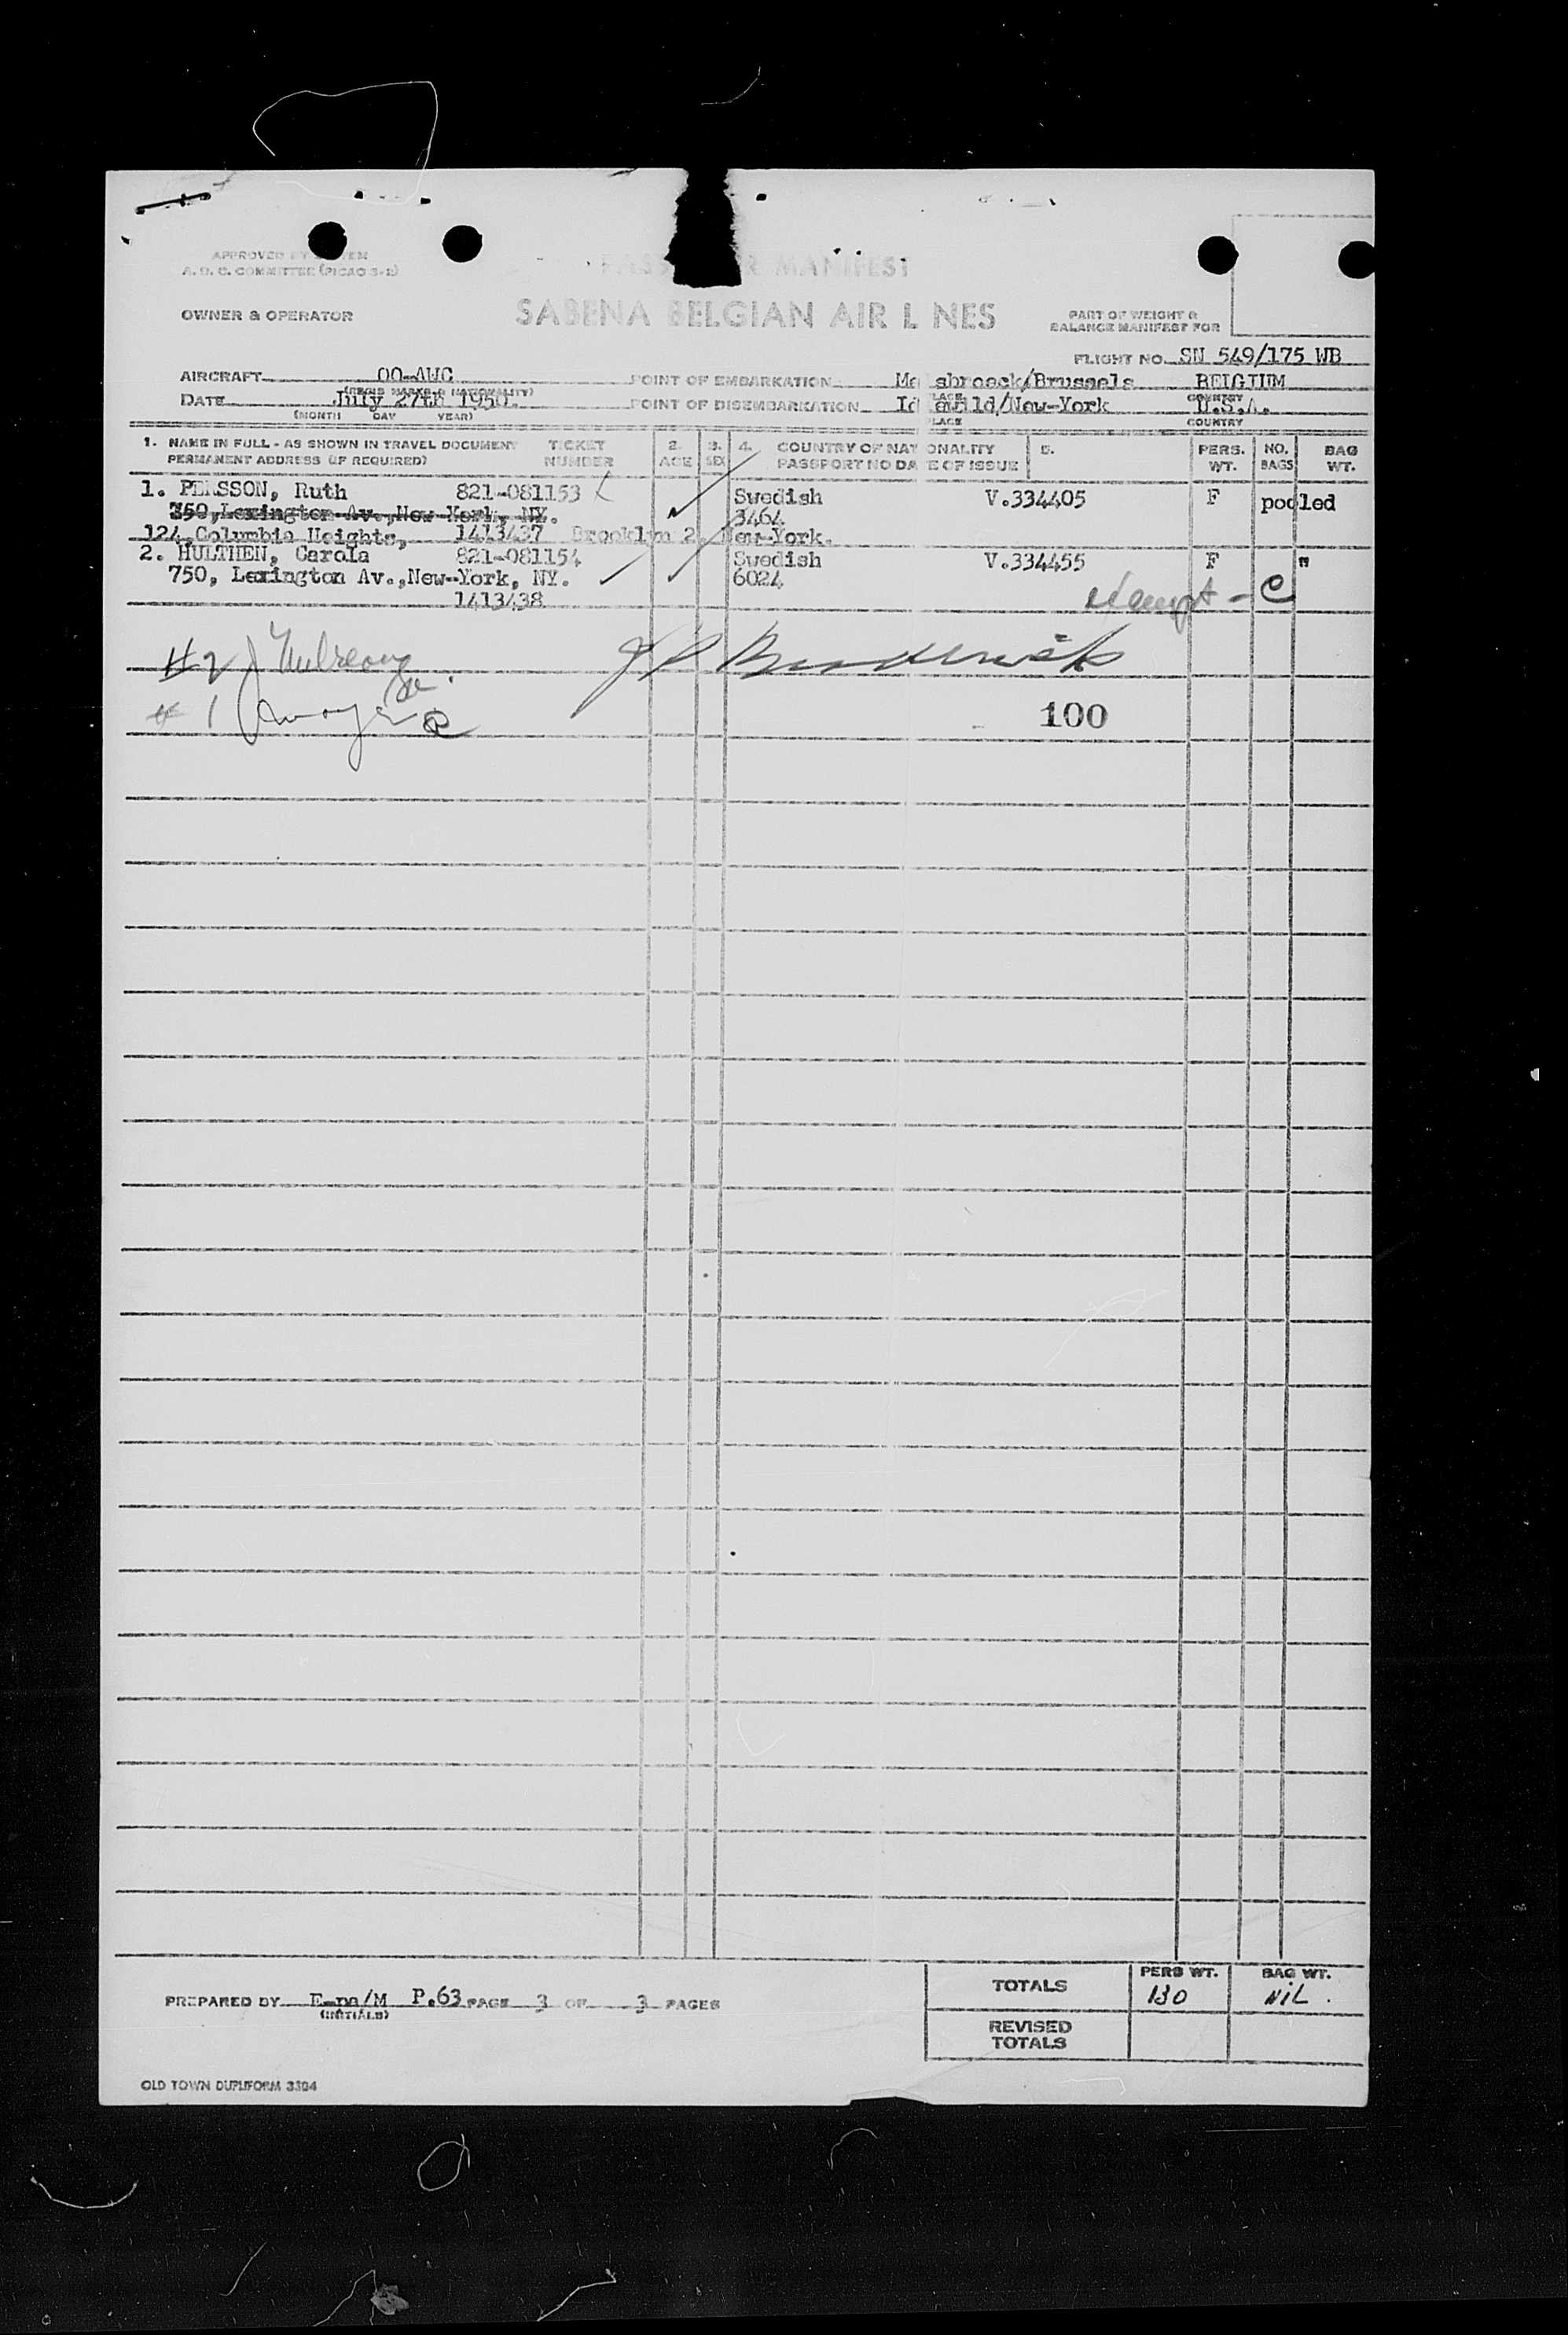 APPROVED BY
A. D. C. COMMITTEE (PICAO 3-2)
MANIFEST
OWNER & OPERATOR
SABENA BELGIAN AIR L NES
PART OF WEIGHT &
BALANCE MANIFEST FOR
FLIGHT NO. SN 549/175 WB
AIRCRAFT OO-AWC POINT OF EMBARKATION Me sbroeck/Brussels BELGIUM
(REGIS MARKS & NATIONALITY) LACE COUNTRY
DATE July 27th 1950. POINT OF DISEMBARKATION Id ewild/New-York U.S.A.
(MONTH DAY YEAR) LACE COUNTRY
1. NAME IN FULL - AS SHOWN IN TRAVEL DOCUMENT TICKET 2. 3. 4. COUNTRY OF NAT ONALITY 5. PERS. NO. BAG
PERMANENT ADDRESS (IF REQUIRED) NUMBER AGE SEX PASSPORT NO DA E OF ISSUE WT. BAGS WT.
1. PERSSON, Ruth 821-081153 Swedish V.334405 F pooled
350, Lexington Av., New York, NY. 3464
124, Columbia Heights, 1413437 Brooklyn 2, New-York.
2. HULTHEN, Carola 821-081154 Swedish V.334455 F "
750, Lexington Av., New-York, NY. 6024
1413438 exempt - C
#2
J P Broderick
# 1
100
PREPARED BY E-pa/M P.63 PAGE 3 OF 3 PAGES
(INITIALS)
TOTALS PERS WT. BAG WT.
130 NIL.
REVISED
TOTALS
OLD TOWN DUPLIFORM 3304